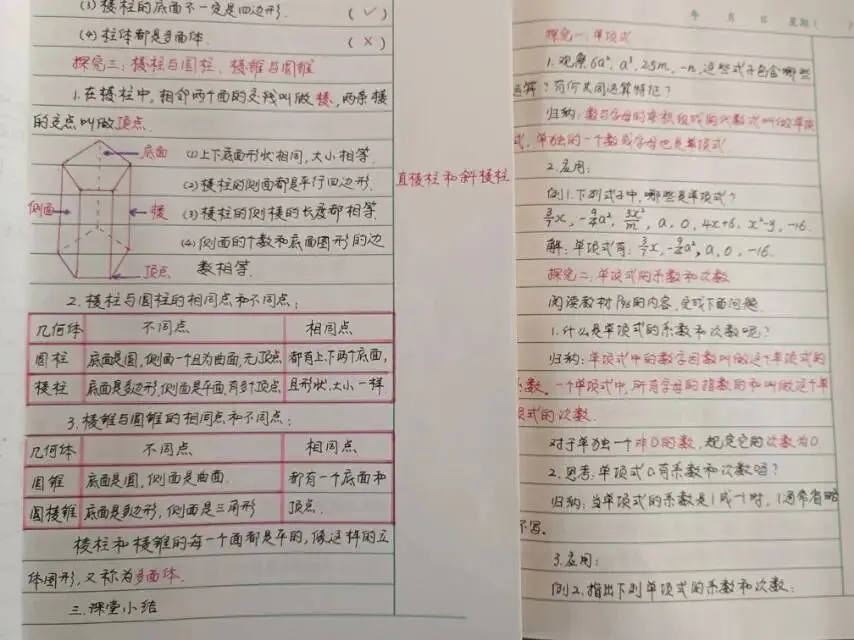 (3) 棱柱的底面不一定是四边形. (✓)
(4) 柱体都是多面体. (×)
探究三：棱柱与圆柱、棱锥与圆锥
1.在棱柱中，相邻两个面的交线叫做棱，两条棱
的交点叫做顶点.
底面
侧面
棱
顶点
(1)上下底面形状相同，大小相等.
(2)棱柱的侧面都是平行四边形.
(3)棱柱的侧棱的长度都相等.
(4)侧面的个数和底面图形的边
数相等.
直棱柱和斜棱柱
2.棱柱与圆柱的相同点和不同点：
几何体 不同点 相同点
圆柱 底面是圆，侧面一个且为曲面，无顶点 都有上下两个底面，
棱柱 底面是多边形，侧面是平面，有多个顶点 且形状、大小一样
3.棱锥与圆锥的相同点和不同点：
几何体 不同点 相同点
圆锥 底面是圆，侧面是曲面. 都有一个底面和
圆棱锥 底面是多边形，侧面是三角形 顶点.
棱柱和棱锥的每一个面都是平的，像这样的立
体图形，又称为多面体.
三.课堂小结
年 月 日 星期(
探究一：单项式
1.观察6a²，a³，2.5m，-n，这些式子包含哪些
运算？有何共同运算特征？
归纳：数与字母的乘积组成的代数式叫做单项
式，单独的一个数或字母也是单项式.
2.应用：
例1.下列式子中，哪些是单项式？
a，0，4x+6，x²-y，-16.
解：单项式有：a，0，-16.
探究二：单项式的系数和次数
阅读教材的内容，完成下面问题.
1.什么是单项式的系数和次数呢？
归纳：单项式中的数字因数叫做这个单项式的
系数，一个单项式中，所有字母的指数的和叫做这个单
项式的次数.
对于单独一个非0的数，规定它的次数为0.
2.思考：单项式a有系数和次数吗？
归纳：当单项式的系数是1或-1时，1通常省略
不写.
3.应用：
例2.指出下列单项式的系数和次数：